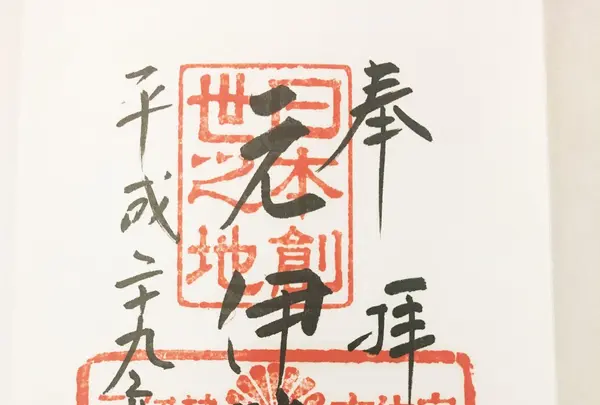 奉拝
日本創
世之地
元伊
平成二十九年